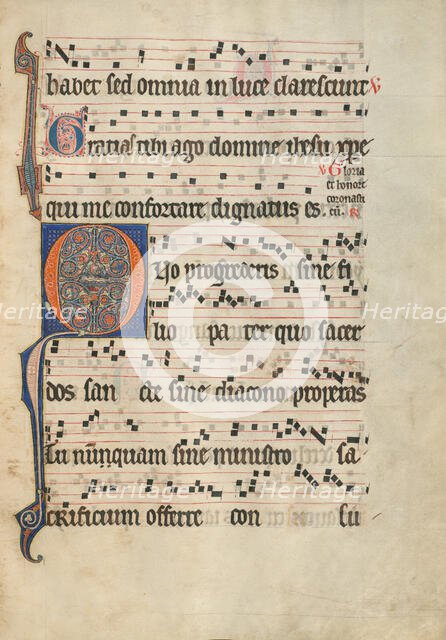 habet sed omnia in luce clarescunt V
Gratias tibi ago domine ihesu xpe
V Gloria
et honore
coronasti
eu. R
qui me confortare dignatus es.
Quo progrederis sine fi
lio pa ter quo sacer
dos san cte sine diacono properas
Tu nunquam sine ministro sa
crificium offerre con su
Heritage
Heritage
Heritage
Heritage
Heritage
Heritage